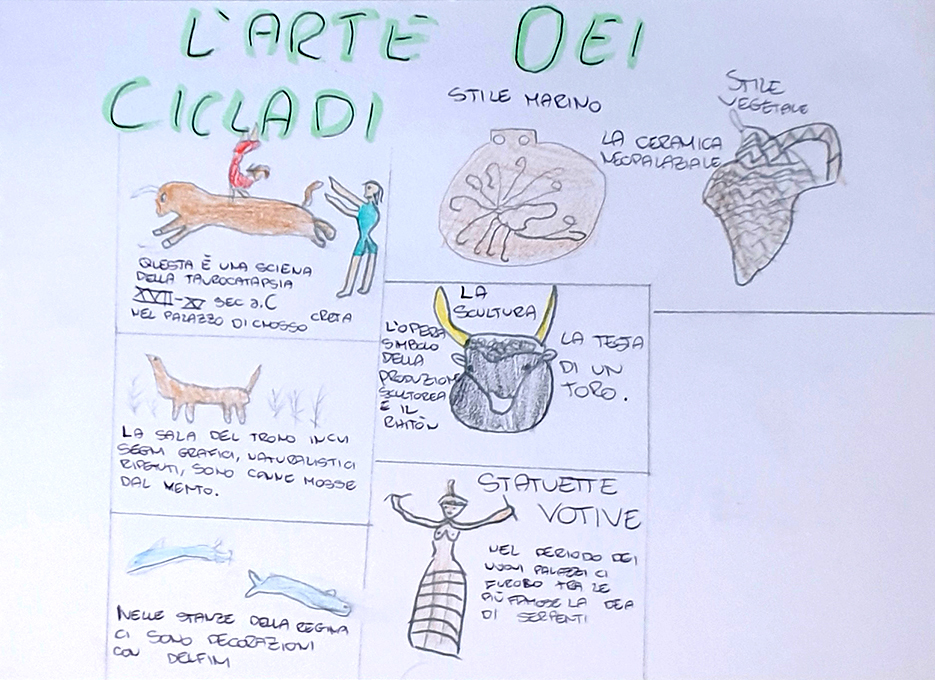 L'ARTE DEI
CICLADI
STILE MARINO
STILE
VEGETALE
LA CERAMICA
NEOPALAZIALE
QUESTA È UNA SCIENA
DELLA TAUROCATAPSIA
XVII-XV SEC a.C
NEL PALAZZO DI CNOSSO CRETA
LA
SCULTURA
L'OPERA
SIMBOLO
DELLA
PRODUZION
SCULTOREA
È IL
RHITÒN
LA TESTA
DI UN
TORO.
LA SALA DEL TRONO IN CUI
SEGNI GRAFICI, NATURALISTICI
RIPENTI, SONO CANNE MOSSE
DAL VENTO.
STATUETTE
VOTIVE
NEL PERIODO DEI
NUOVI PALAZZI CI
FUROBO TRA LE
PIÙ FAMOSE LA DEA
DI SERPENTI
NELLE STANZE DELLA REGINA
CI SONO DECORAZIONI
CON DELFINI